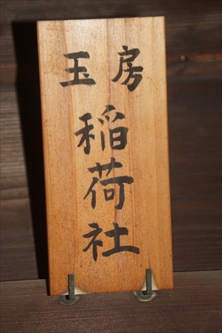 玉房
稲荷社